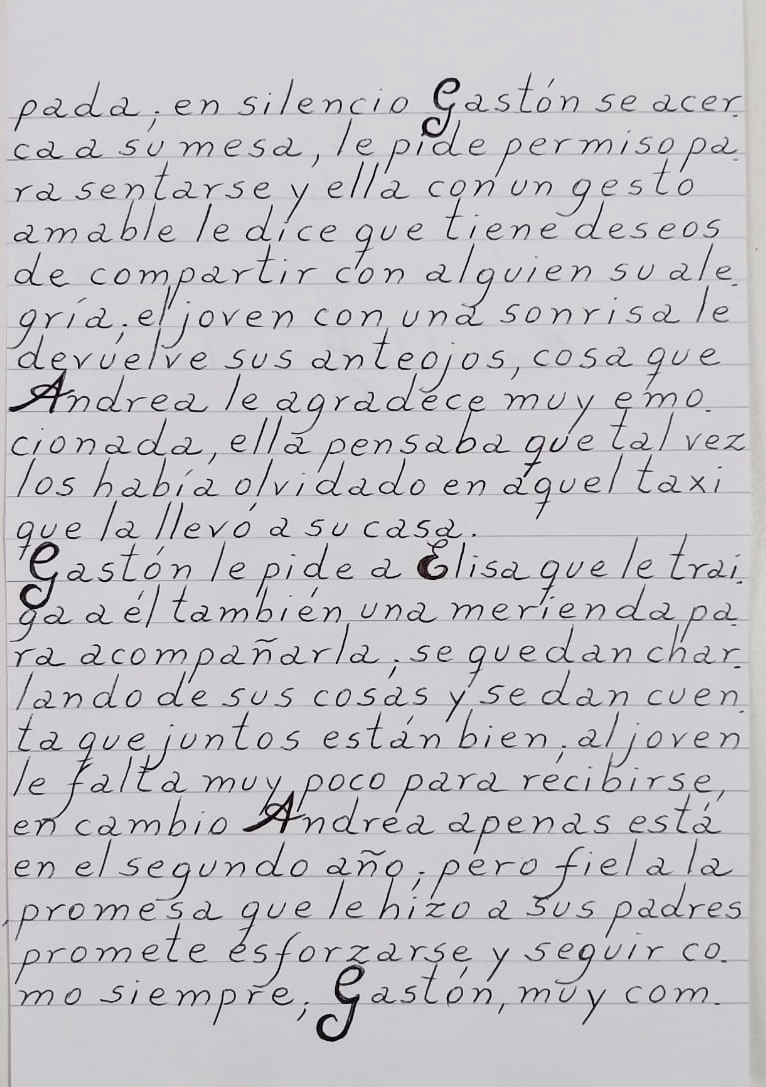 pada; en silencio Gastón se acer.
ca a su mesa, le pide permiso pa.
ra sentarse y ella con un gesto
amable le dice que tiene deseos
de compartir con alguien su ale.
gría; el joven con una sonrisa le
devuelve sus anteojos, cosa que
Andrea le agradece muy emo.
cionada, ella pensaba que tal vez
los había olvidado en aquel taxi
que la llevó a su casa.
Gastón le pide a Elisa que le trai.
ga a él también una merienda pa.
ra acompañarla; se quedan char.
lando de sus cosas y se dan cuen.
ta que juntos están bien; al joven
le falta muy poco para recibirse,
en cambio Andrea apenas está
en el segundo año; pero fiel a la
promesa que le hizo a sus padres
promete esforzarse y seguir co.
mo siempre; Gastón, muy com.